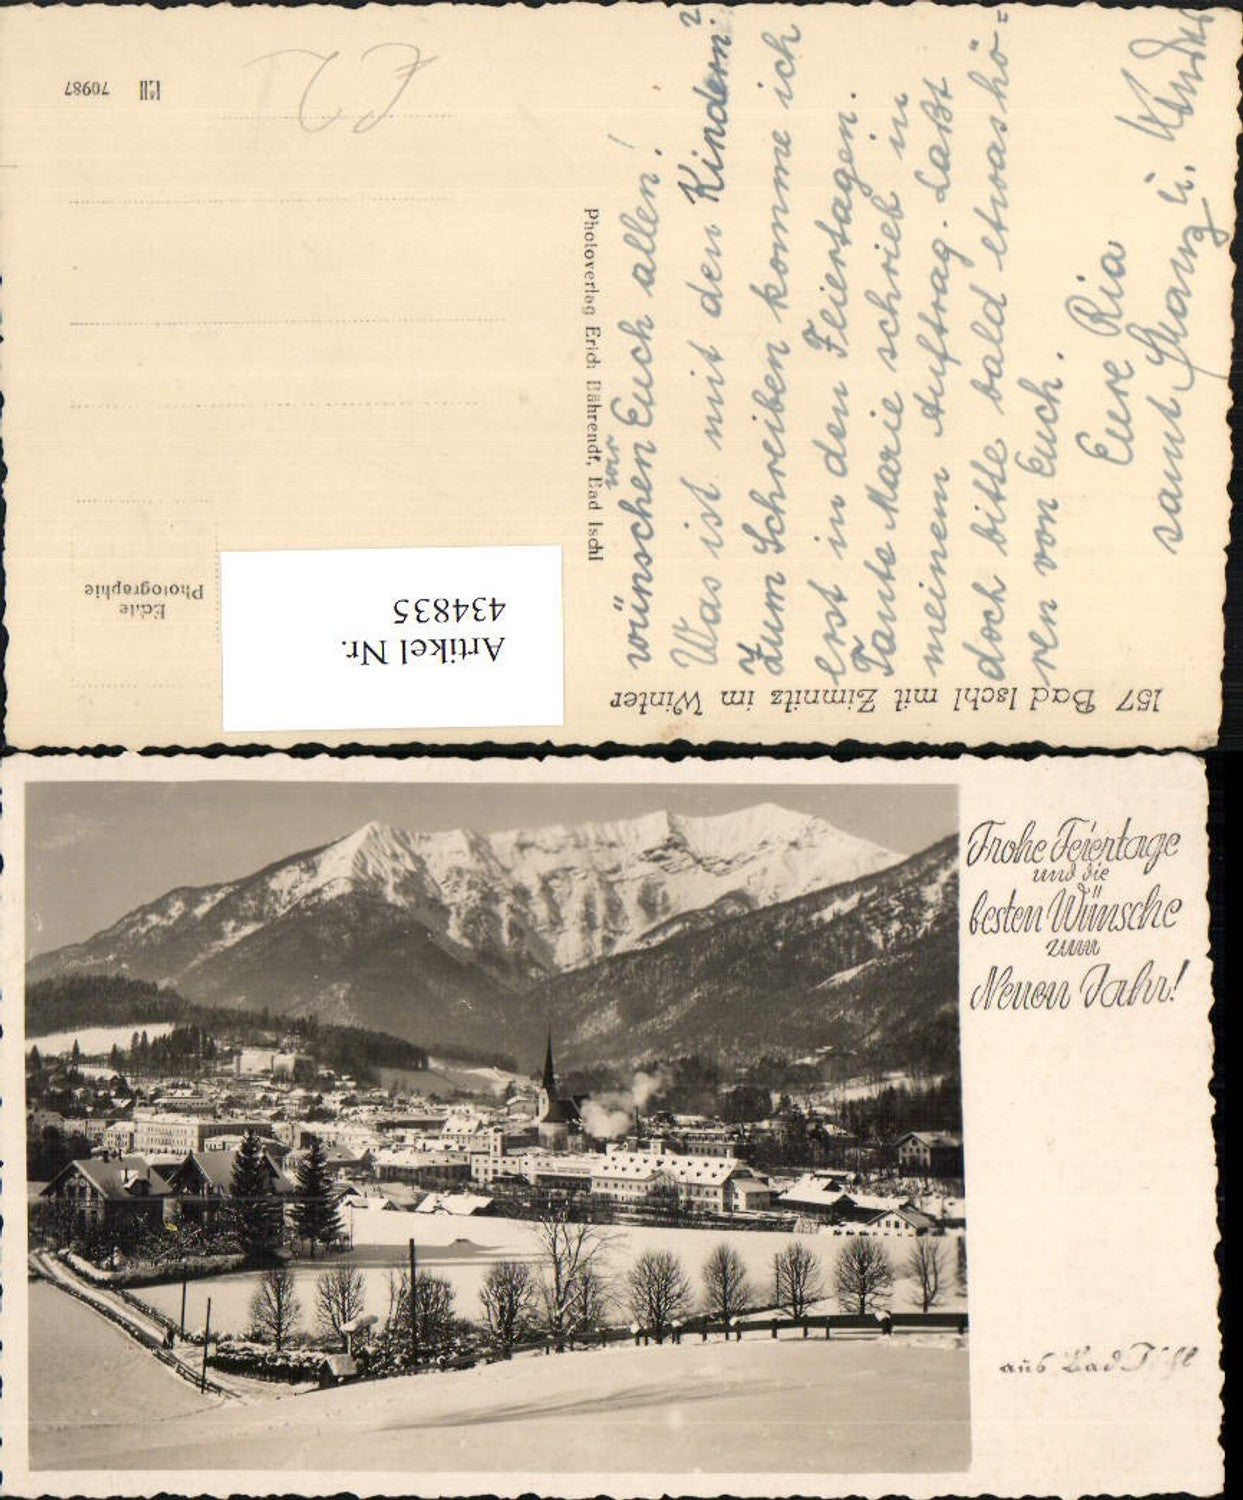 157 Bad Ischl mit Zimnitz im Winter
wir
wünschen Euch allen!
Was ist mit den Kindern?
Zum Schreiben komme ich
erst in den Feiertagen.
Tante Marie schrieb in
meinem Auftrag. Laßt
doch bitte bald etwas hö=
ren von Euch.
Eure Ria
samt Franz u. Kinder
Photoverlag Erich Bährendt, Bad Ischl
Artikel Nr.
434835
Echte
Photographie
70987
Frohe Feiertage
und die
besten Wünsche
zum
Neuen Jahr!
aus Bad Ischl